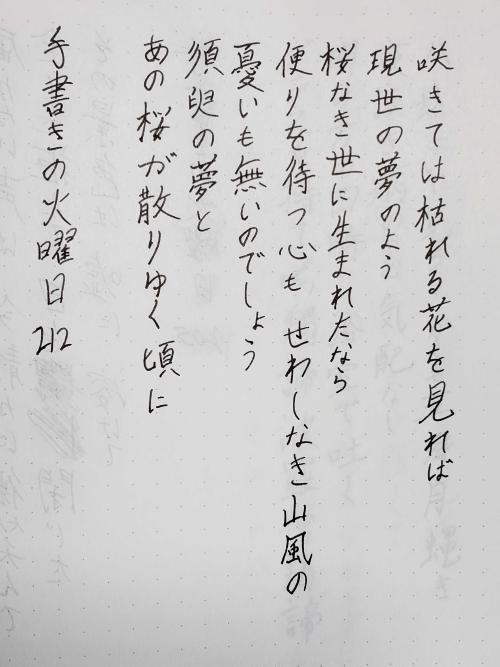 咲きては枯れる花を見れば
現世の夢のよう
桜なき世に生まれたなら
便りを待つ心も せわしなき山風の
憂いも無いのでしょう
須臾の夢と
あの桜が散りゆく頃に
手書きの火曜日 212